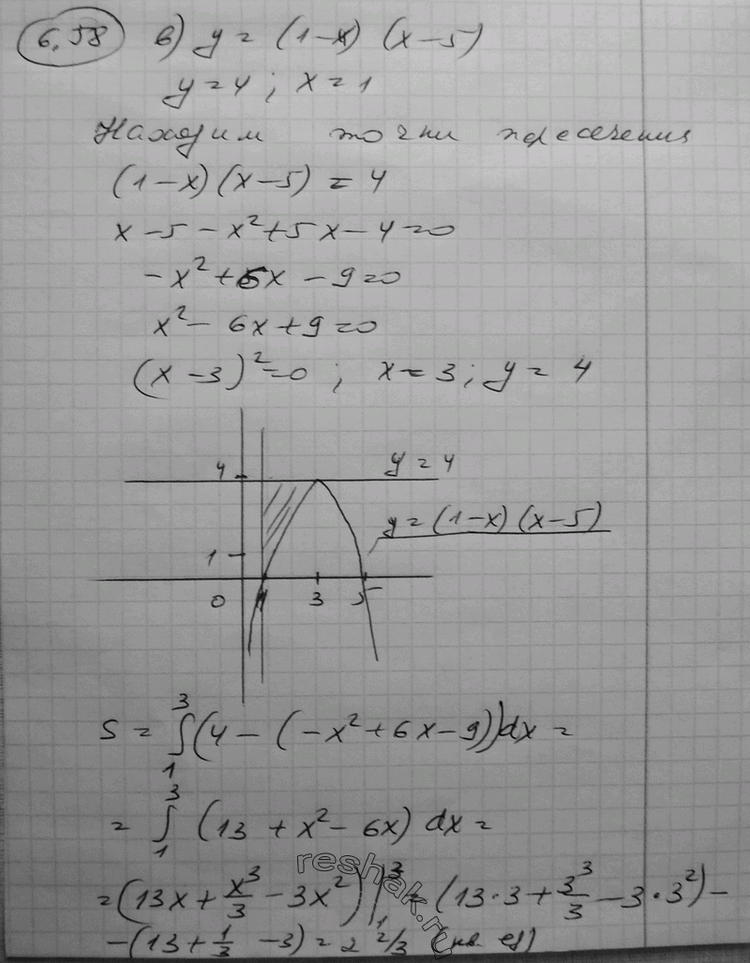 6.58 в) y = (1-x) (x-5)
y = 4 ; x = 1
Находим точки пересечения
(1-x)(x-5) = 4
x - 5 - x² + 5x - 4 = 0
-x² + 6x - 9 = 0
x² - 6x + 9 = 0
(x-3)² = 0 ; x = 3 ; y = 4
4 y = 4
y = (1-x)(x-5)
1
0 1 3 5
S = ∫₁³ (4 - (-x² + 6x - 9)) dx =
= ∫₁³ (13 + x² - 6x) dx =
= (13x + x³/3 - 3x²) |₁³ = (13·3 + 3³/3 - 3·3²) -
- (13 + 1/3 - 3) = 2 2/3 (кв. ед)
reshak.ru